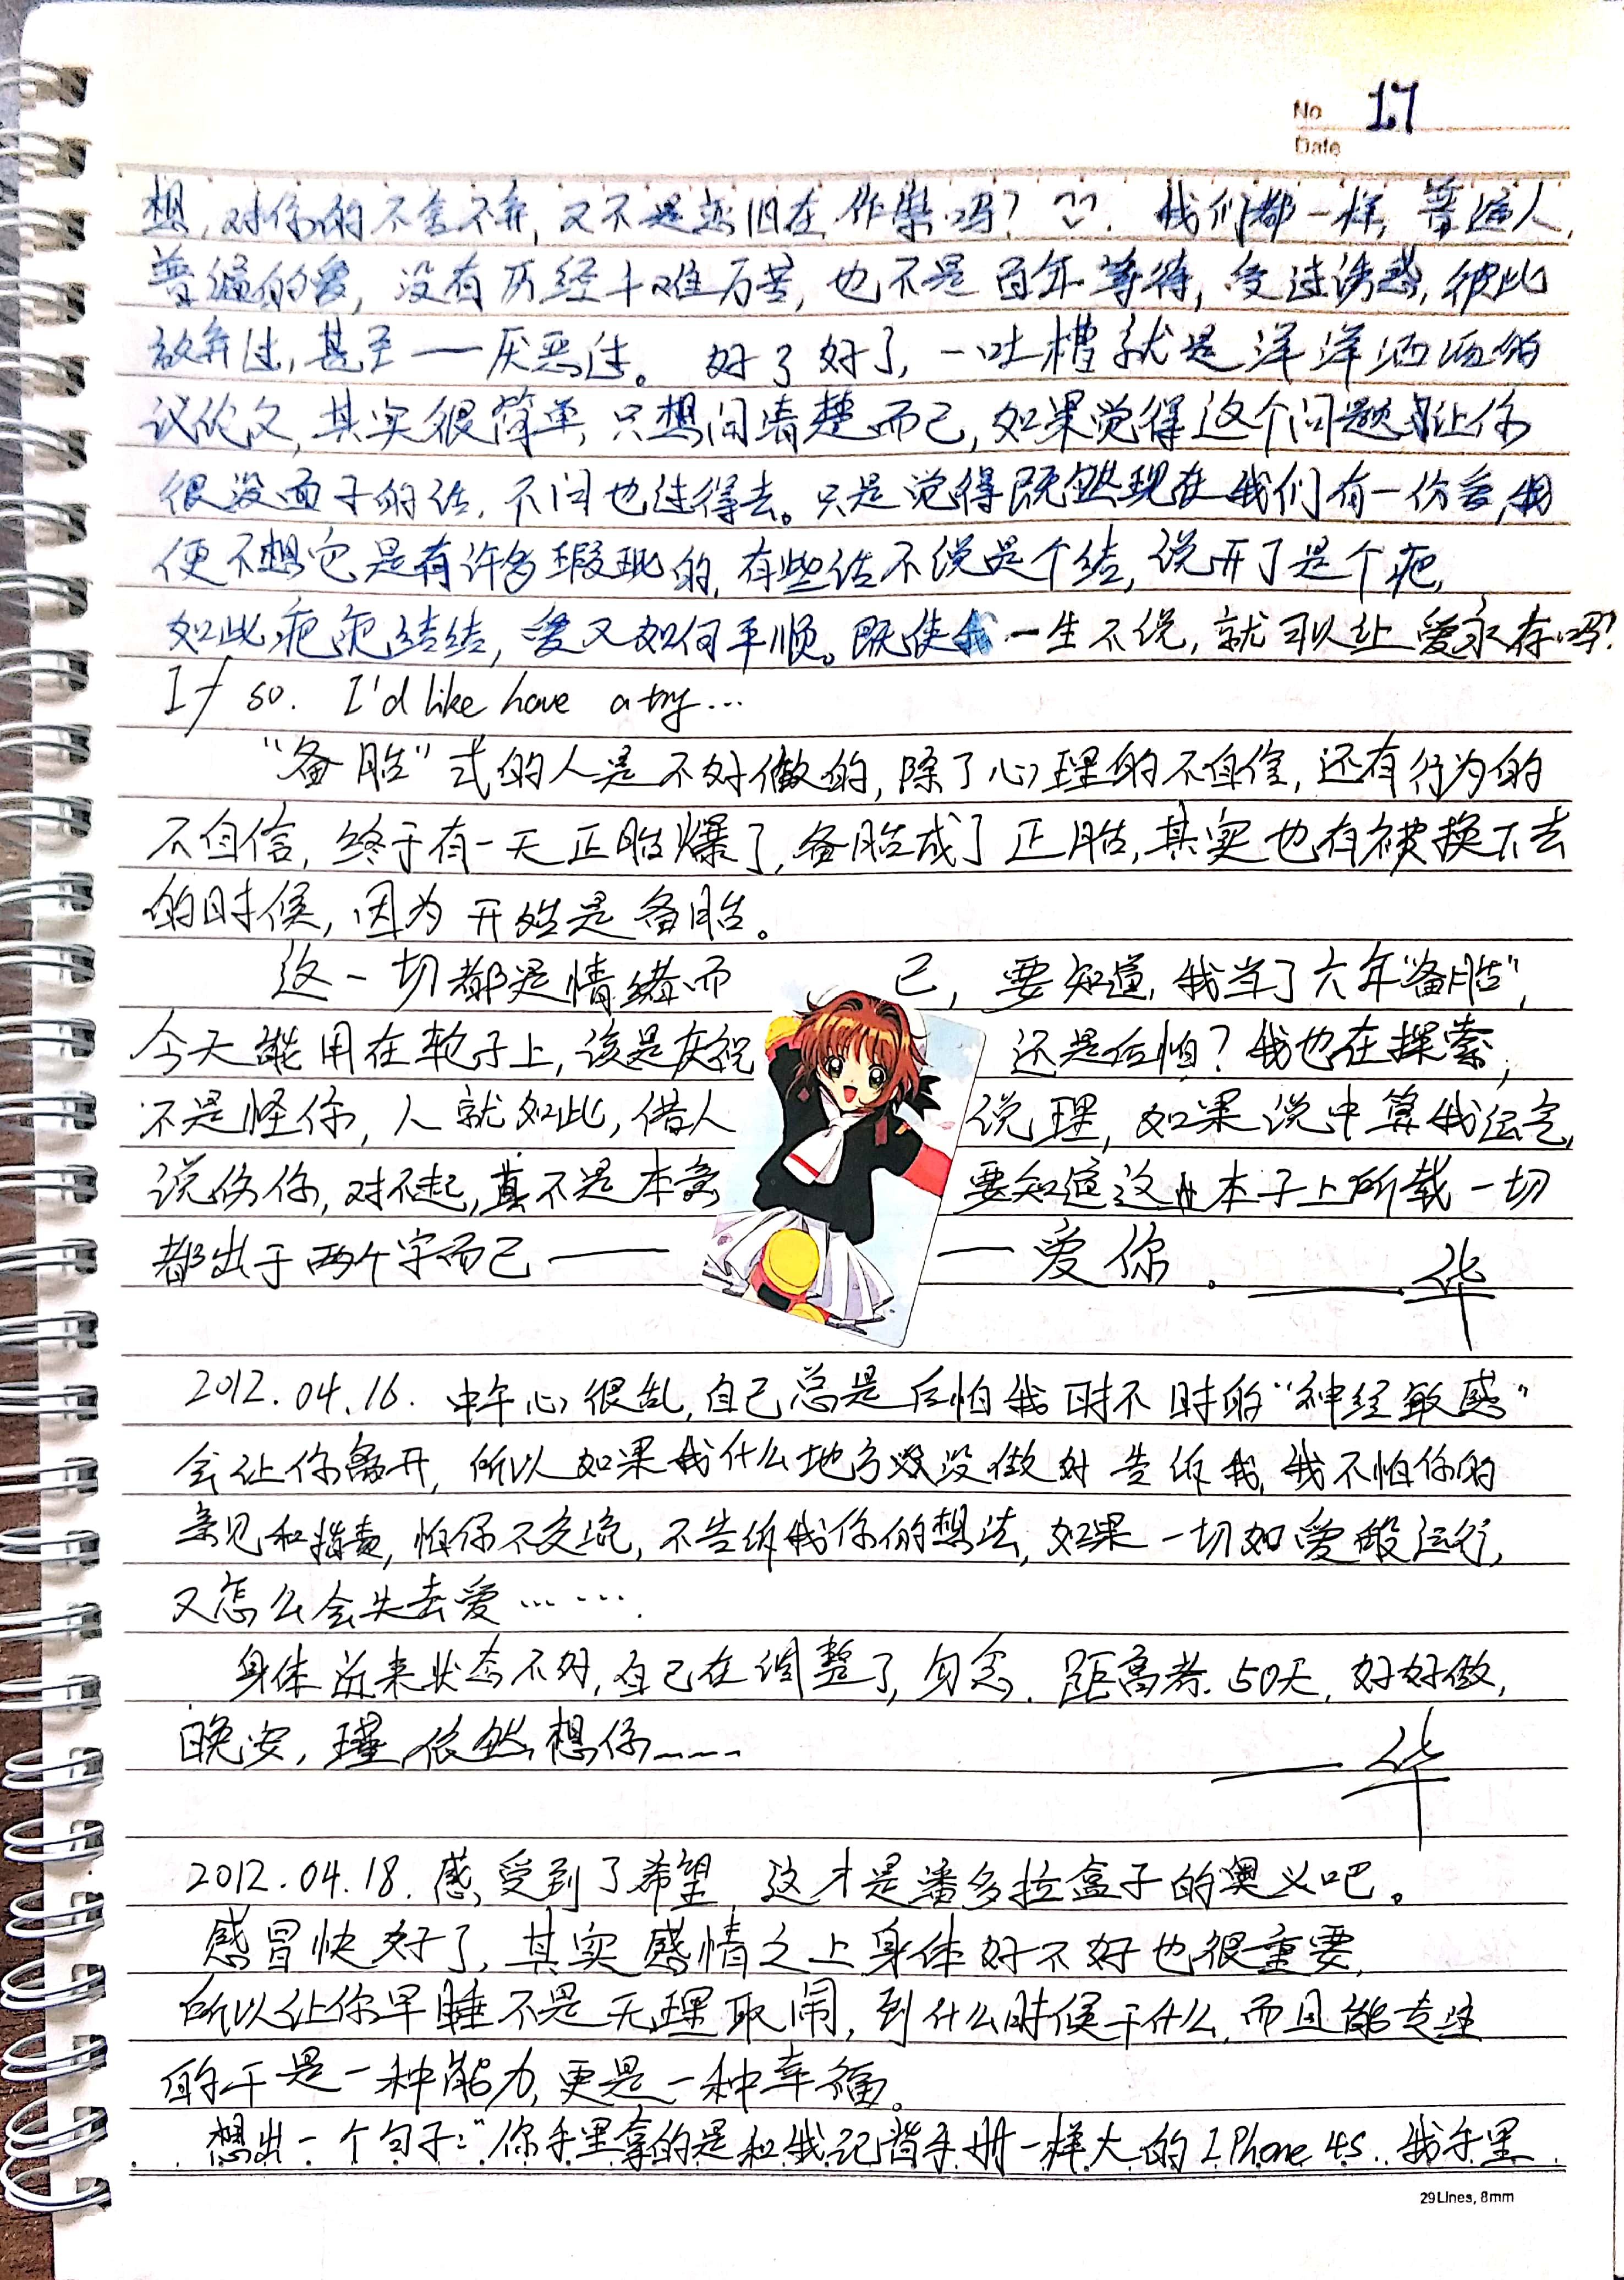 No 17
Date
想,对你的不舍不弃,又不是恋旧在作祟吗? 我们都一样,普通人,
普通的爱,没有历经千难万苦,也不是百年等待,受过诱惑,彼此
放弃过,甚至——厌恶过。好了好了,一吐槽就是洋洋洒洒的
议论文,其实很简单,只想问清楚而已,如果觉得这个问题让你
很没面子的话,不问也过得去。只是觉得既然现在我们有一份爱,我
便不想它是有许多瑕玼的,有些结不说是个结,说开了是个疤,
如此疤疤结结,爱又如何平顺。既使我一生不说,就可以让爱永存吗?
If so. I'd like have a try...
“备胎”式的人是不好做的,除了心理的不自信,还有行为的
不自信,终于有一天正胎爆了,备胎成了正胎,其实也有被换下去
的时候,因为开始是备胎。
这一切都是情绪而已,要知道,我当了六年“备胎”,
今天能用在轮子上,该是庆祝还是后怕?我也在探索,
不是怪你,人就如此,借人说理,如果说中算我运气,
说伤你,对不起,真不是本意要知道这本子上所载一切
都出于两个字而已——爱你。——华
2012.04.16. 中午心很乱,自己总是后怕我时不时的“神经敏感”
会让你离开,所以如果我什么地方没做好告诉我,我不怕你的
意见和指责,怕你不交流,不告诉我你的想法,如果一切如爱般运行,
又怎么会失去爱…….
身体近来状态不好,自己在调整了,勿念.距高考50天,好好做,
晚安,瑾,依然想你~~~
——华
2012.04.18. 感受到了希望 这才是潘多拉盒子的奥义吧。
感冒快好了,其实感情之上身体好不好也很重要,
所以让你早睡不是无理取闹,到什么时候干什么,而且能专注
的干是一种能力,更是一种幸福。
想出一个句子:“你手里拿的是和我记谱手册一样大的IPhone 4S,我手里
29Lines, 8mm